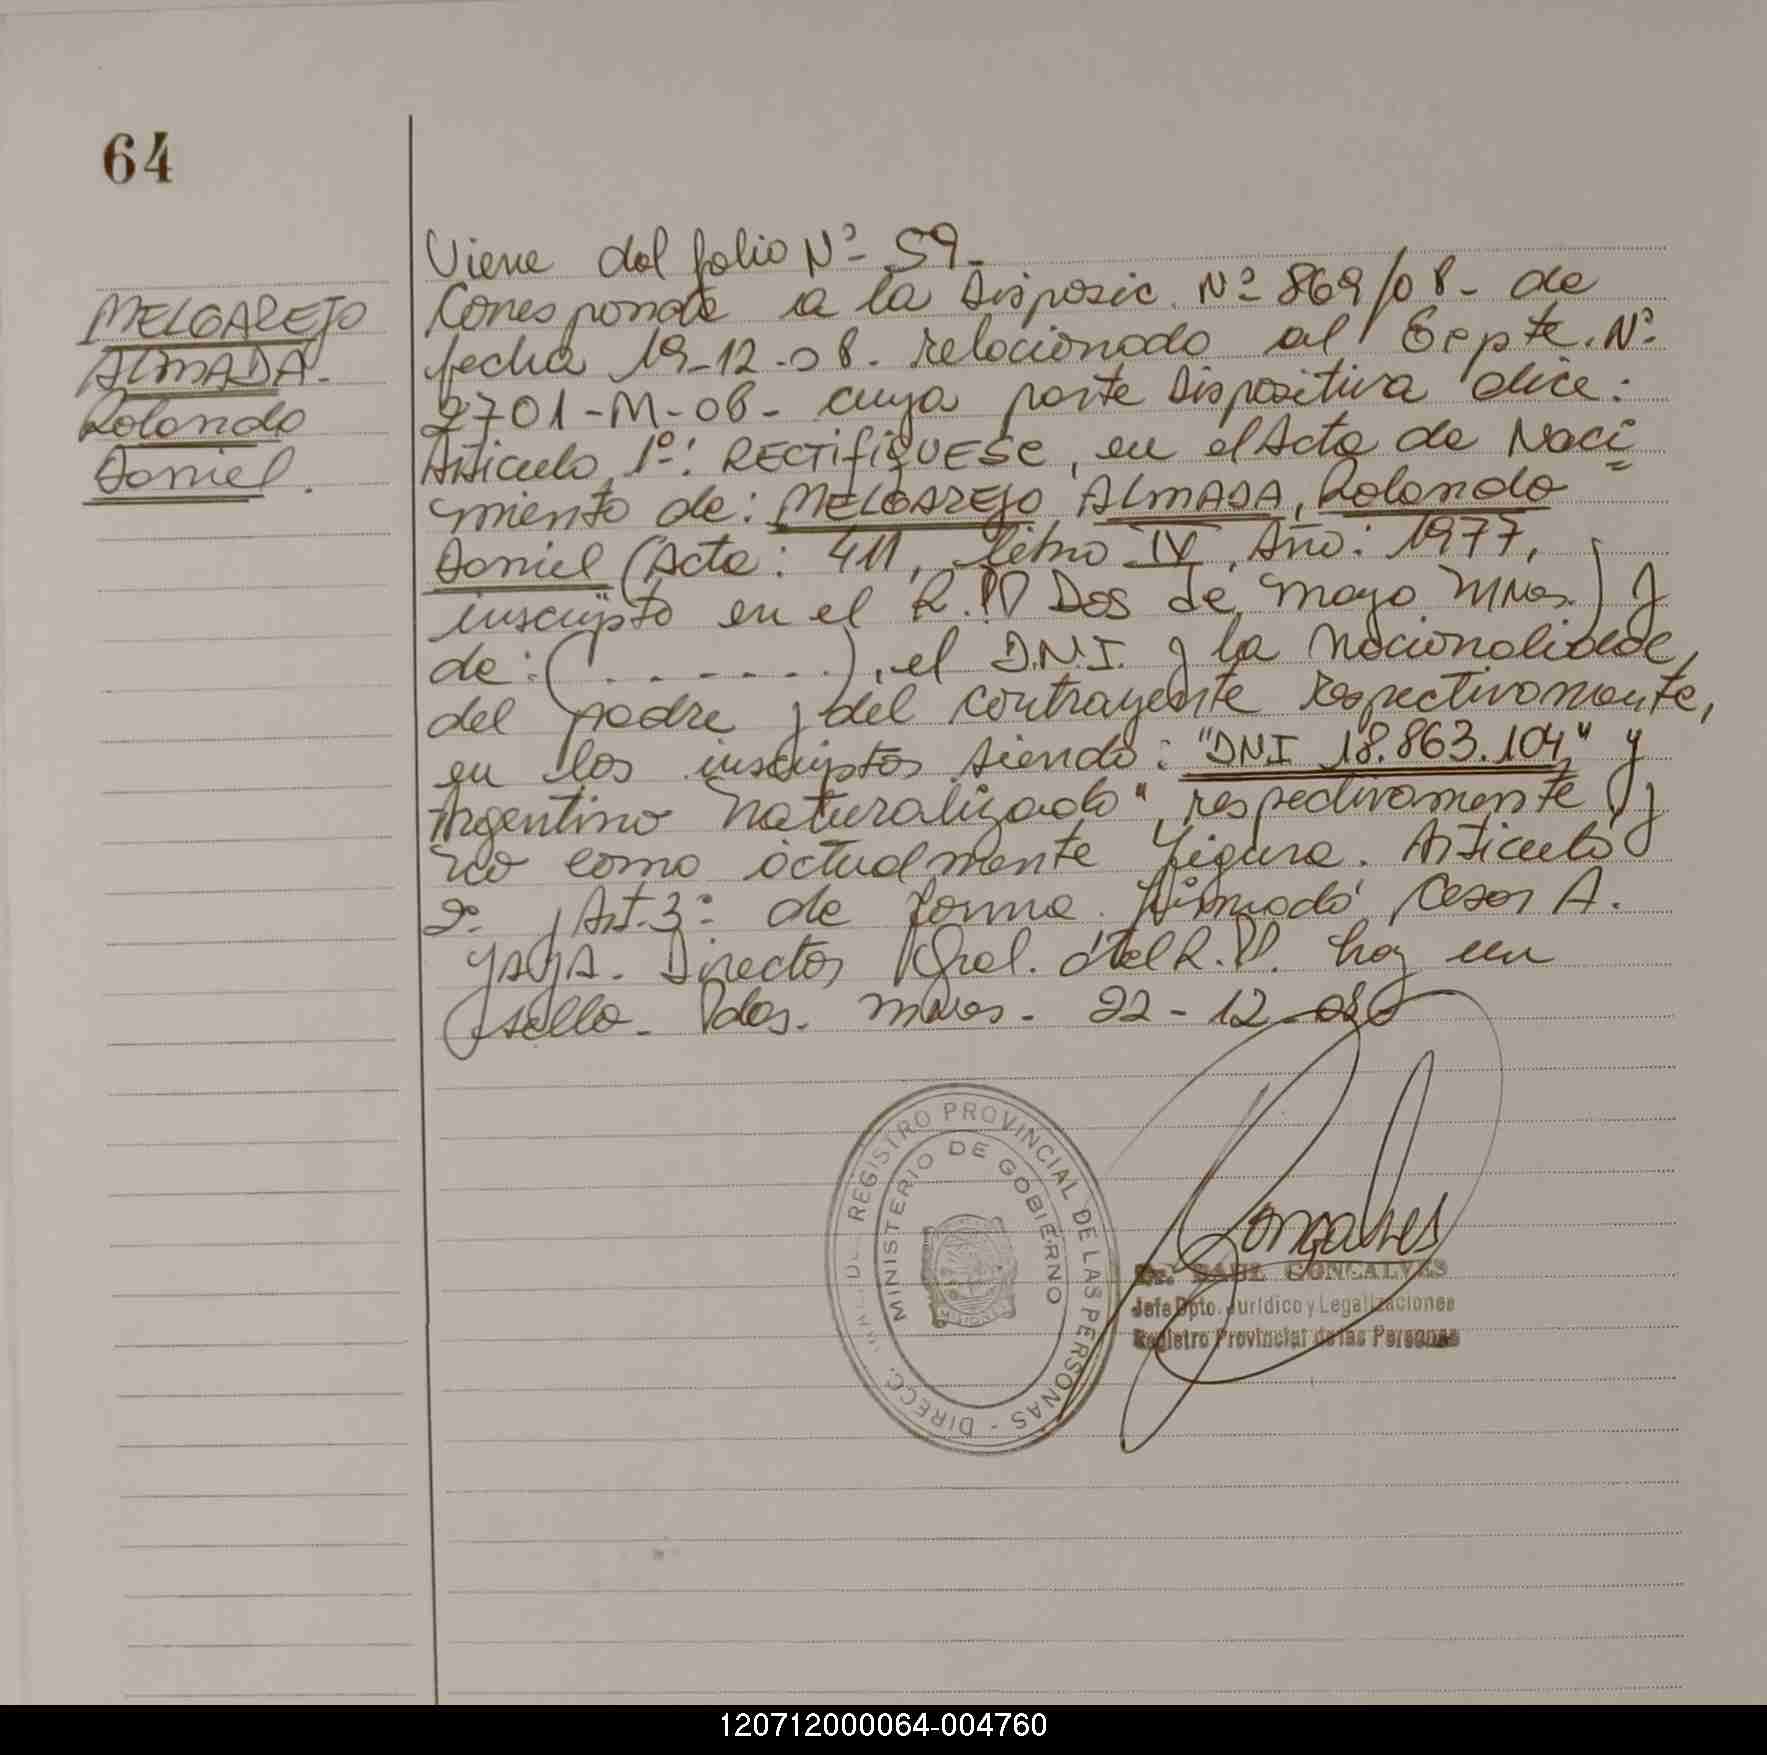 64
MELGAREJO
ALMADA.
Rolando
Daniel.
Viene del folio Nº 59.
Corresponde a la Disposic. Nº 869/08- de
fecha 19-12-08- relacionado al Expte. Nº
2701-M-08- cuya parte Dispositiva dice:
Articulo 1º: RECTIFIQUESE, en el Acta de Naci
miento de: MELGAREJO ALMADA, Rolando
Daniel (Acta: 411, Libro IV, Año: 1977,
inscripto en el R.P.P Dos de Mayo Mnes.) y
de: (. . . . . . .), el D.N.I. y la Nacionalidad,
del padre y del contrayente respectivamente,
en los inscriptos siendo: "DNI 18.863.104" y
Argentino Naturalizado", respectivamente y
no como actualmente figura. Articulo
2º y Art. 3º: de forma. Firmado Cesar A.
YAYA. Director Gral. del R.P.P. hay un
sello. Pdas. Mnes. 22-12-08
DIRECC. REGISTRO PROVINCIAL DE LAS PERSONAS -
MINISTERIO DE GOBIERNO
Goncalves
GONCALVES
Jefe Dpto. Jurídico y Legalizaciones
Registro Provincial de las Personas
120712000064-004760